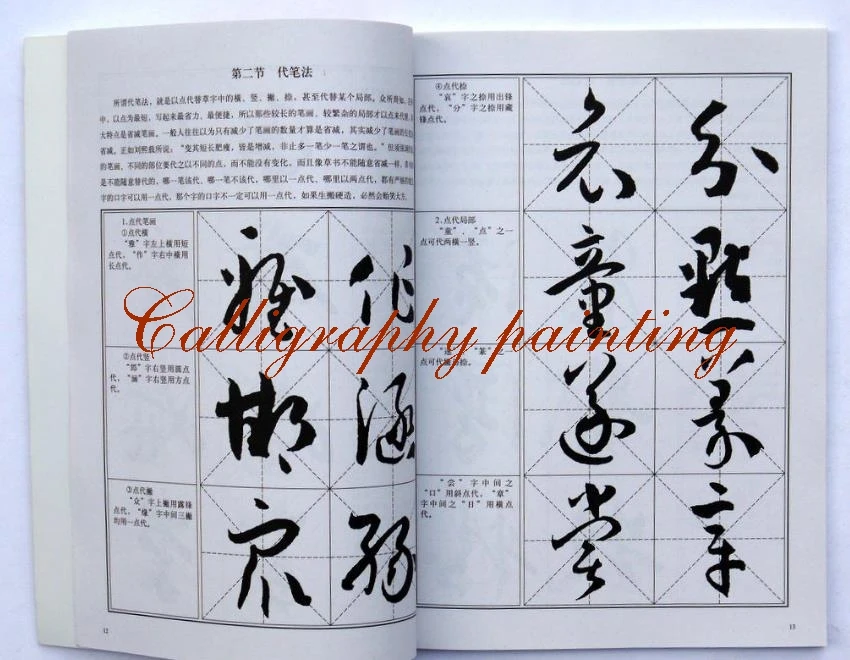 第二节 代笔法
所谓代笔法，就是以点代替草字中的横、竖、撇、捺，甚至代替某个局部。众所周知，在
中，以点为最短，写起来最省力、最便捷，所以那些较长的笔画、较繁杂的局部才以点来代替，
大特点是省减笔画。一般人往往以为只有减少了笔画的数量才算是省减，其实减少了笔画的长度
省减。正如刘熙载所说：“变其短长肥瘦，皆是增减，非止多一笔少一笔之谓也。”但须强调
的笔画、不同的部位要代之以不同的点，而不能没有变化，而且像草书不能随意省减一样，
是不能随意替代的，哪一笔该代、哪一笔不该代、哪里以一点代、哪里以两点代，都有严格的
字的口字可以用一点代，那个字的口字不一定可以用一点代，如果生搬硬造，必然会贻笑大方。
1.点代笔画
①点代横
“雅”字左上横用短
点代，“作”字右中横用
长点代。
雅 作
②点代竖
“邯”字右竖用圆点
代，“涵”字右竖用方点
代。
邯 涵
③点代撇
“众”字上撇用露锋
点代，“缘”字中间三撇
均用一点代。
众
12
④点代捺
“哀”字之捺用出锋
点代，“分”字之捺用藏
锋点代。
哀 分
2.点代局部
“童”、“点”之一
点可代两横一竖。
童 點
“篆”
点可代
“尝”字中间之
“口”用斜点代，“章”
字中间之“日”用横点
代。
章
13
Calligraphy painting